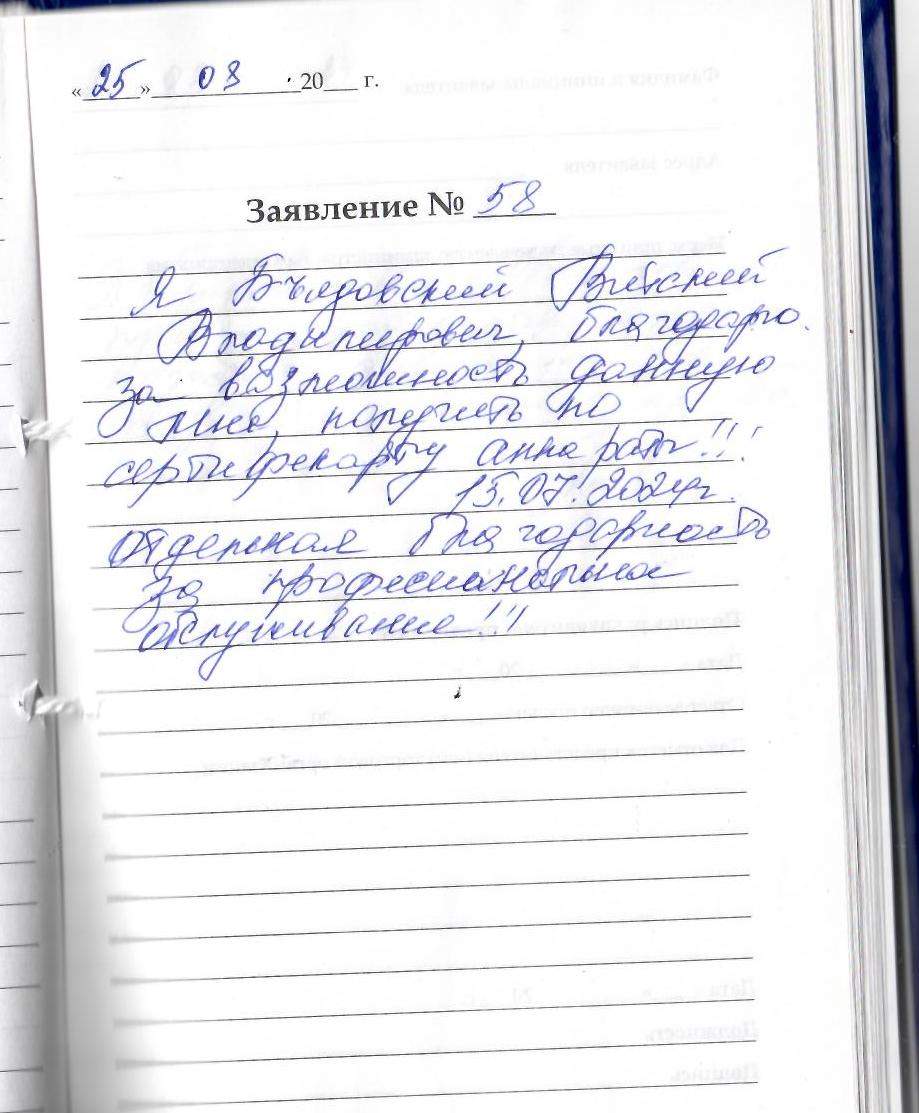 «25» 08 20___ г.
Заявление № 58
Я Бъядовский Виталий
Владимирович, благодарю
за возможность данную
мне, получить по
сертификарту аппараты!!!
15.07.2024г.
отдельная благодарность
за професиональное
обслуживание!!!